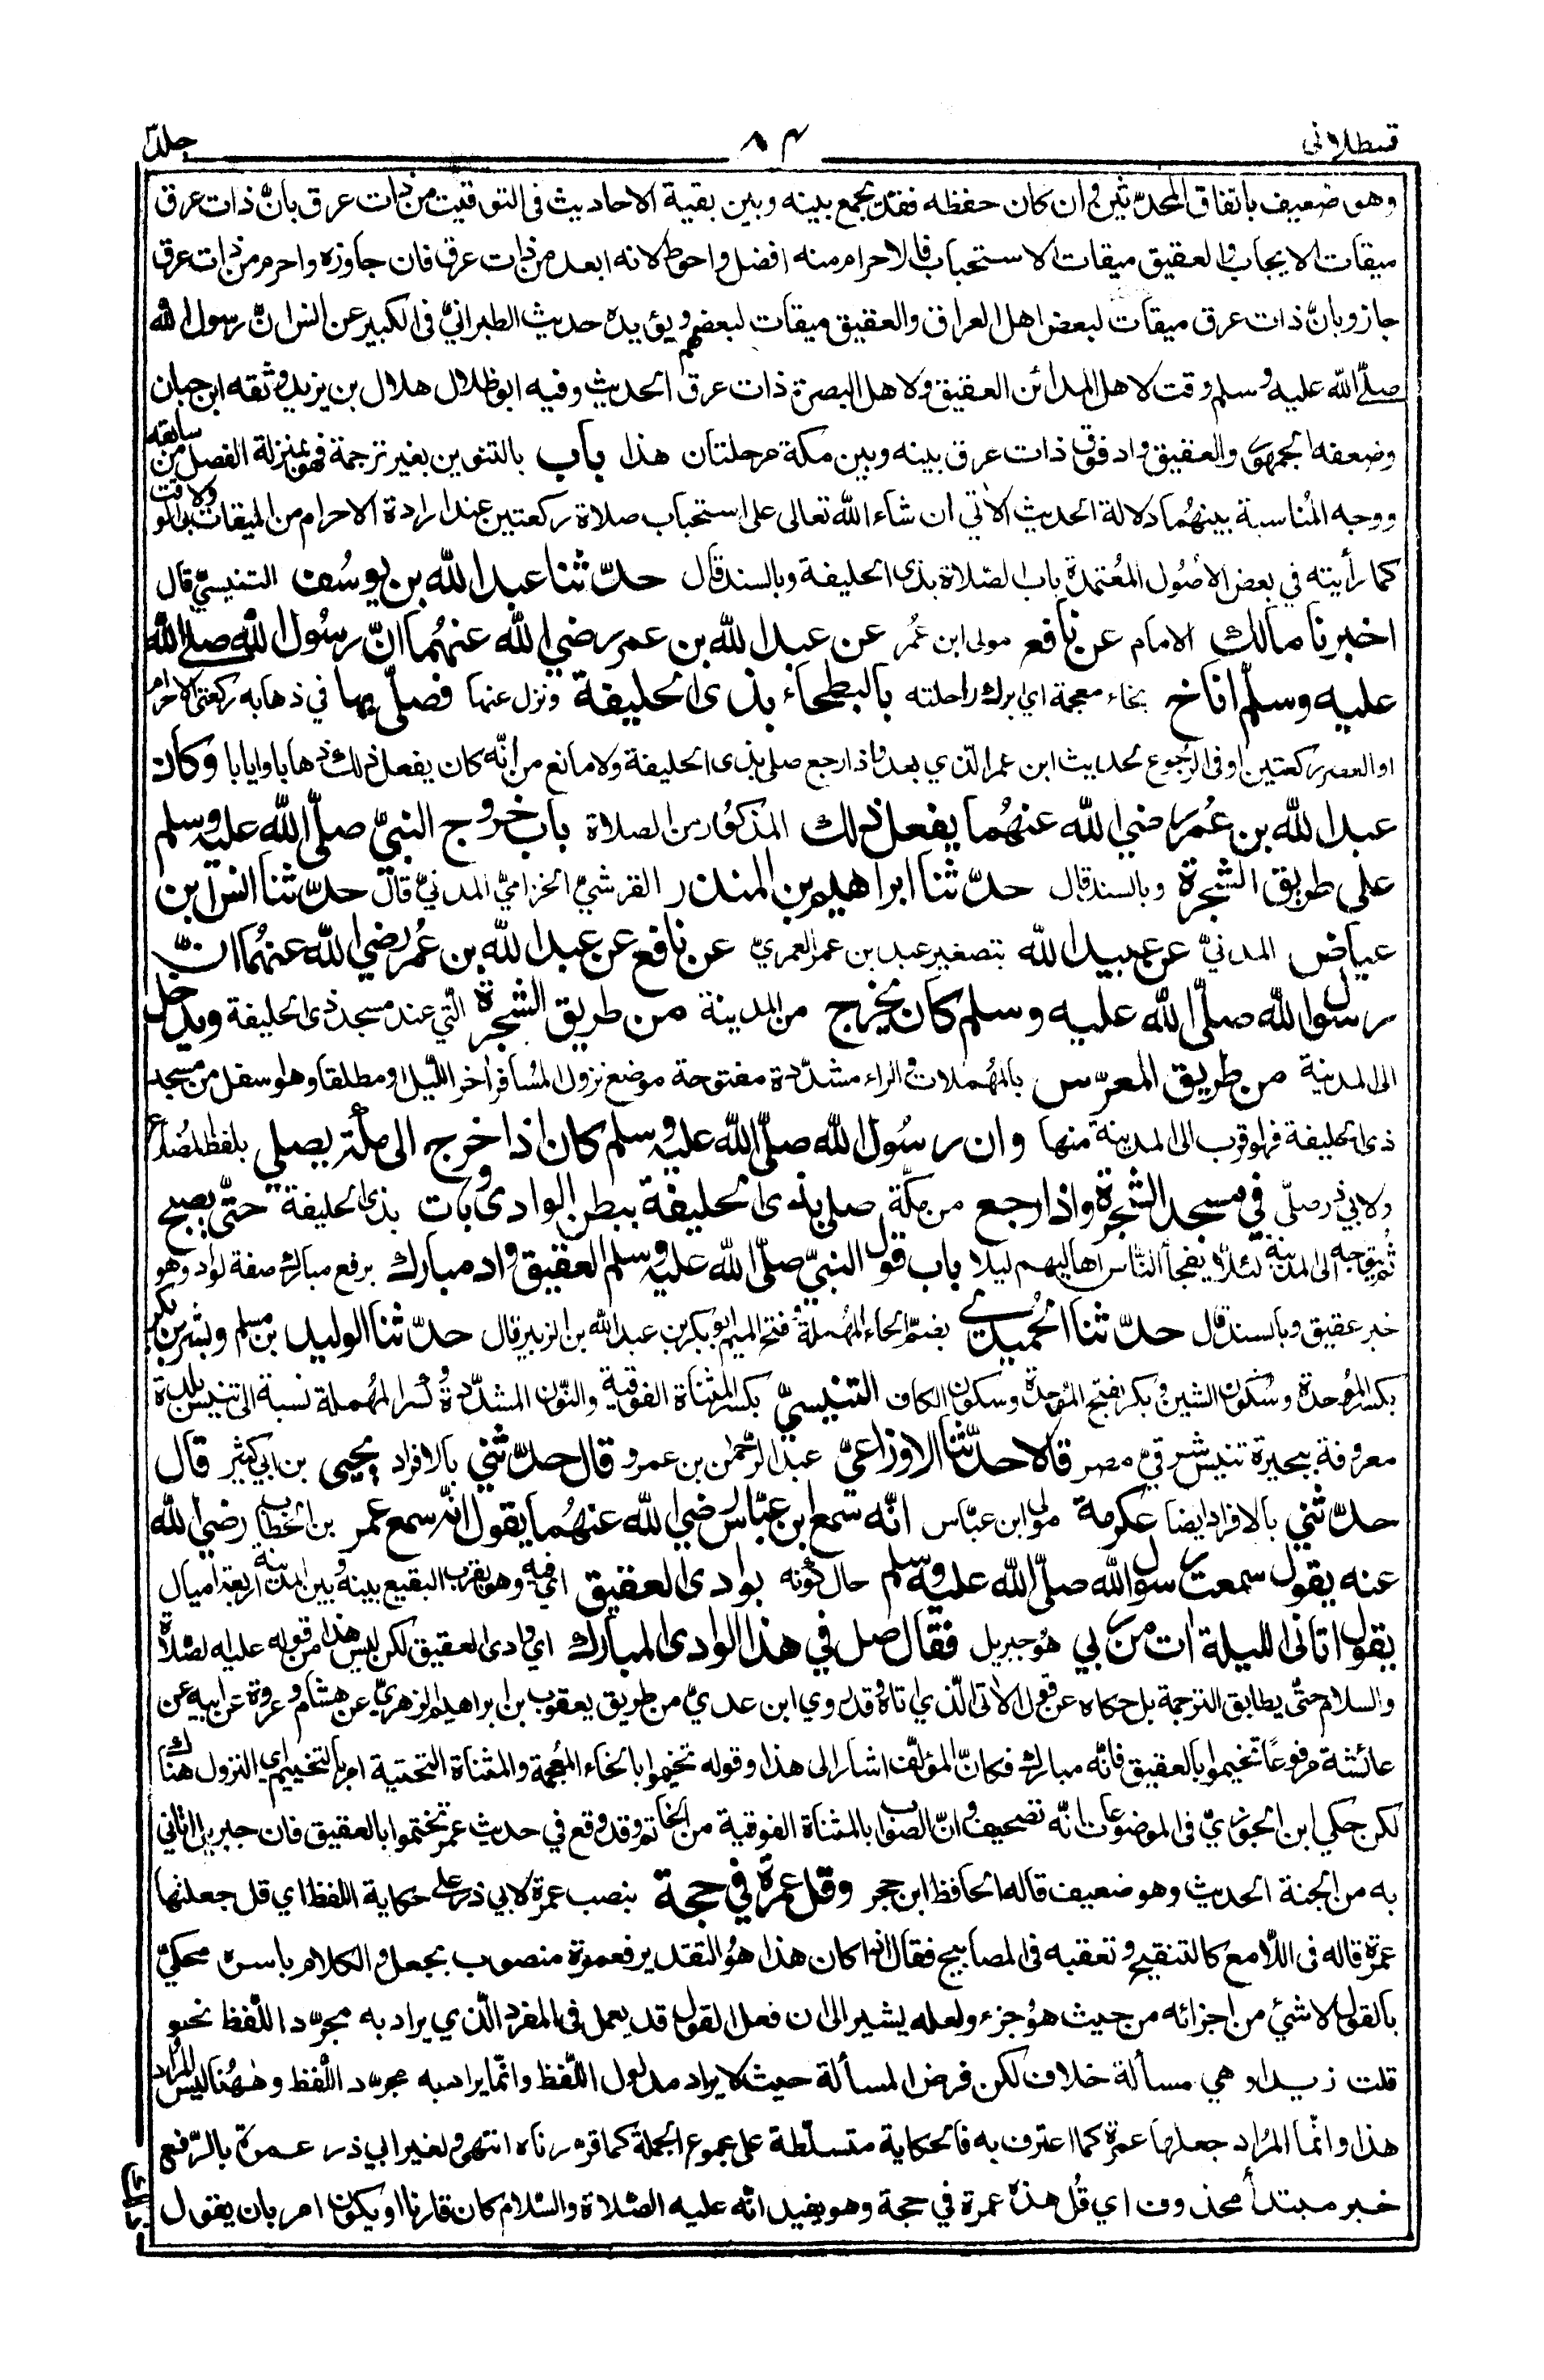 قسطلاني
٨٣
جلد٣
وهو ضعيف باتفاق المحدّثين وان كان حفظه فقد يجمع بينه وبين بقية الاحاديث في التوقيت من ذات عرق بانّ ذات عرق
ميقات الايجاب والعقيق ميقات الاستحباب فالاحرام منه افضل واحوط لانه ابعد من ذات عرق فان جاوزه واحرم من ذات عرق
جاز وبانّ ذات عرق ميقات لبعض اهل العراق والعقيق ميقات لبعضهم ويؤيده حديث الطبرانيّ في الكبير عن انس انّ رسول الله
صلّى الله عليه وسلم وقت لاهل المدائن العقيق ولاهل البصرة ذات عرق الحديث وفيه ابو ظلال هلال بن يزيد وثقه ابن حبان
وضعفه الجمهور والعقيق واد فوق ذات عرق بينه وبين مكة مرحلتان هذا باب بالتنوين بغير ترجمة فهو بمنزلة الفصل من سابقه
ووجه المُناسبة بينهُما دلالة الحديث الآتي ان شاء الله تعالى على استحباب صلاة ركعتين عند ارادة الاحرام من الميقات ولاقت
كما رأيته في بعض الاصُول المُعتمدة باب الصّلاة بذى الحليفة وبالسند قال حدّثنا عبد الله بن يوسُف التنيسيّ قال
اخبرنا مالك الامام عن نافع مولى ابن عُمر عن عبد الله بن عمر رضي الله عنهُما انّ رسُول الله صلى الله
عليه وسلّم اناخ بخاء معجمة اي ابرك راحلته بالبطحاء بذى الحليفة ونزل عنها فصلّى بها في ذهابه ركعتى الاحرام
او العصر ركعتين او في الرجُوع لحديث ابن عمر الّذي بعده واذا رجع صلى بذى الحليفة ولا مانع من أنّه كان يفعل ذلك ذهابا وايابا وكان
عبد الله بن عُمر رضي الله عنهُما يفعل ذلك المذكُور من الصلاة باب خرُوج النبيّ صلّى الله عليه وسلم
على طريق الشجرة وبالسند قال حدّثنا ابراهيم بن المنذر القرشيّ الحزاميّ المدنيّ قال حدّثنا انس بن
عياض المدنيّ عن عبيد الله بتصغير عبد بن عمر العمريّ عن نافع عن عبد الله بن عُمر رضي الله عنهُما انّ
رسول الله صلّى الله عليه وسلم كان يخرج من المدينة من طريق الشجرة الّتي عند مسجد ذى الحليفة ويدخل
الى المدينة من طريق المعرّس بالمُهملات والراء مشدّدة مفتوحة موضع نزول المُسافر آخر اللّيل او مطلقا وهو اسفل من مسجد
ذى الحليفة فهو اقرب الى المدينة منها وان رسُول الله صلّى الله عليه وسلم كان اذا خرج الى مكّة يصلي بلفظ المُضارع
ولابي ذر صلّى في مسجد الشجرة واذا رجع من مكّة صلى بذى الحليفة ببطن الوادى وبات بذى الحليفة حتّى يصبح
ثم يتوجه الى المدينة لئلّا يفجأ النّاس اهاليهم ليلا باب قول النبيّ صلّى الله عليه وسلم العقيق واد مبارك برفع مبارك صفة لواد وهو
خبر عقيق وبالسند قال حدّثنا الحُميديّ بضمّ الحاء المُهملة وفتح الميم ابو بكر بن عبد الله بن الزبير قال حدّثنا الوليد بن مسلم وبشر بن بكر
بكسر المُوحدة وسُكُون الشين وبكر بفتح المُوحدة وسكون الكاف التنيسيّ بكسر المثناة الفوقية والنّون المشدّدة وُكسر المُهملة نسبة الى تنيس بلدة
معروفة ببحيرة تنيس شرقيّ مصر قالا حدّثنا الاوزاعيّ عبد الرّحمٰن بن عمرو قال حدّثني بالافراد يحيى بن ابي كثير قال
حدّثني بالافراد ايضا عكرمة مولى ابن عبّاس انّه سمع ابن عبّاس رضي الله عنهُما يقول انّه سمع عمر بن الخطاب رضي الله
عنه يقول سمعت رسول الله صلّى الله عليه وسلم حال كونه بوادى العقيق اي فيه وهو بقرب البقيع بينه وبين المدينة اربعة اميال
يقول اتاني الليلة ات من ربي هُو جبريل فقال صل في هذا الوادى المبارك اي وادى العقيق لكن ليس هذا من قوله عليه الصّلاة
والسلام حتّى يطابق الترجمة بل حكاه عن قول الآتي الّذي اتاه وقد روي ابن عديّ من طريق يعقوب بن ابراهيم الزهريّ عن هشام بن عروة عن ابيه عن
عائشة مرفُوعًا تخيموا بالعقيق فانّه مبارك فكانّ المؤلّف اشار الى هذا وقوله تخيموا بالخاء المُعجمة والمثناة التحتية امر بالتخييم اي النزول هناك
لكن حكي ابن الجوزيّ في الموضوعات انّه تصحيف وانّ الصّواب بالمثناة الفوقية من الخاتم وقد وقع في حديث عمر تختموا بالعقيق فان جبريل اتاني
به من الجنة الحديث وهو ضعيف قاله الحافظ ابن حجر وقل عمرة في حجة بنصب عمرة لابي ذر على حكاية اللفظ اي قل جعلتها
عمرة قاله في اللّامع كالتنقيح وتعقبه في المصابيح فقال اذا كان هذا هُو التقدير فعمرة منصوب بجعل والكلام باسره محكيّ
بالقول لا شئ من اجزائه من حيث هُو جزء ولعله يشير الى ان فعل القول قد يعمل في المفرد الّذي يراد به مجرّد اللّفظ نحو
قلت زيدا وهي مسألة خلاف لكن فرض المسألة حيث لا يراد مدلول اللّفظ وانّما يراد به مجرّد اللّفظ وهٰهُنا ليس المُراد
هذا وانّما المُراد جعلها عمرة كما اعترف به فالحكاية متسلّطة على مجموع الجملة كما قرّرناه انتهى ولغير ابي ذر عمرة بالرّفع
خبر مبتدأ محذوف اي قُل هذه عمرة في حجة وهو يفيد انّه عليه الصّلاة والسّلام كان قارنا او يكون امر بان يقول